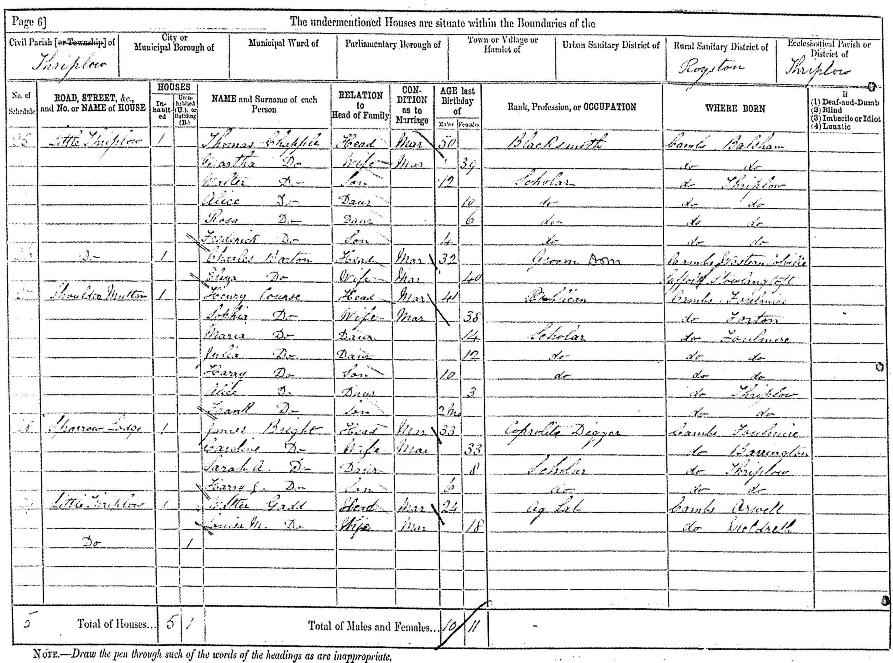 Page 6] The undermentioned Houses are situate within the Boundaries of the
Civil Parish [or Township] of City or Municipal Borough of Municipal Ward of Parliamentary Borough of Town or Village or Hamlet of Urban Sanitary District of Rural Sanitary District of Ecclesiastical Parish or District of
Thriplow Royston Thriplow
No. of Schedule ROAD, STREET, &c., and No. or NAME of HOUSE HOUSES Inhabited Uninhabited (U.), or Building (B.) NAME and Surname of each Person RELATION to Head of Family CONDITION as to Marriage AGE last Birthday of Males Females Rank, Profession, or OCCUPATION WHERE BORN If (1) Deaf-and-Dumb (2) Blind (3) Imbecile or Idiot (4) Lunatic
25 Little Thriplow 1 Thomas Chapple Head Mar Blacksmith Cambs Balsham
Martha Do Wife Mar 39 do do
Walter Do Son 12 Scholar do Thriplow
Alice Do Daur 10 do do do
Rosa Do Daur 6 do do do
Frederick Do Son 4 do do do
Do 1 Charles Barton Head Mar 32 Groom Dom Cambs
Eliza Do Wife Mar 40 Suffolk Stowlangtoft
Shoulder Mutton 1 Henry Course Head Mar 41 Publican Cambs Foulmire
Sophia Do Wife Mar 38 do Foxton
Maria Do Daur 14 Scholar do Foulmire
Julia Do Daur 12 do do do
Harry Do Son 10 do do do
Alice Do Daur 3 do Thriplow
Frank Do Son 2m do do
Sparrow Lodge 1 James Bright Head Mar 33 Coprolite Digger Cambs Foulmire
Caroline Do Wife Mar 33 do Barrington
Sarah A. Do Daur 8 Scholar do Thriplow
Harry J. Do Son do do do
Little Thriplow 1 Walter Gadd Head Mar 24 Ag Lab Cambs Orwell
Louisa M. Do Wife Mar 18 do Meldreth
Do 1
5 Total of Houses... 5 1 Total of Males and Females... 10 11
NOTE.—Draw the pen through such of the words of the headings as are inappropriate.